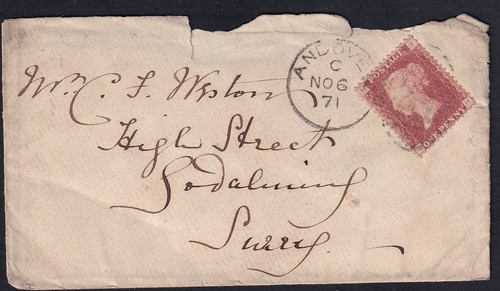 ANDOVE
C
NO 6
71
Mr C. F. Weston
High Street
Godalming
Surry
ONE PENNY